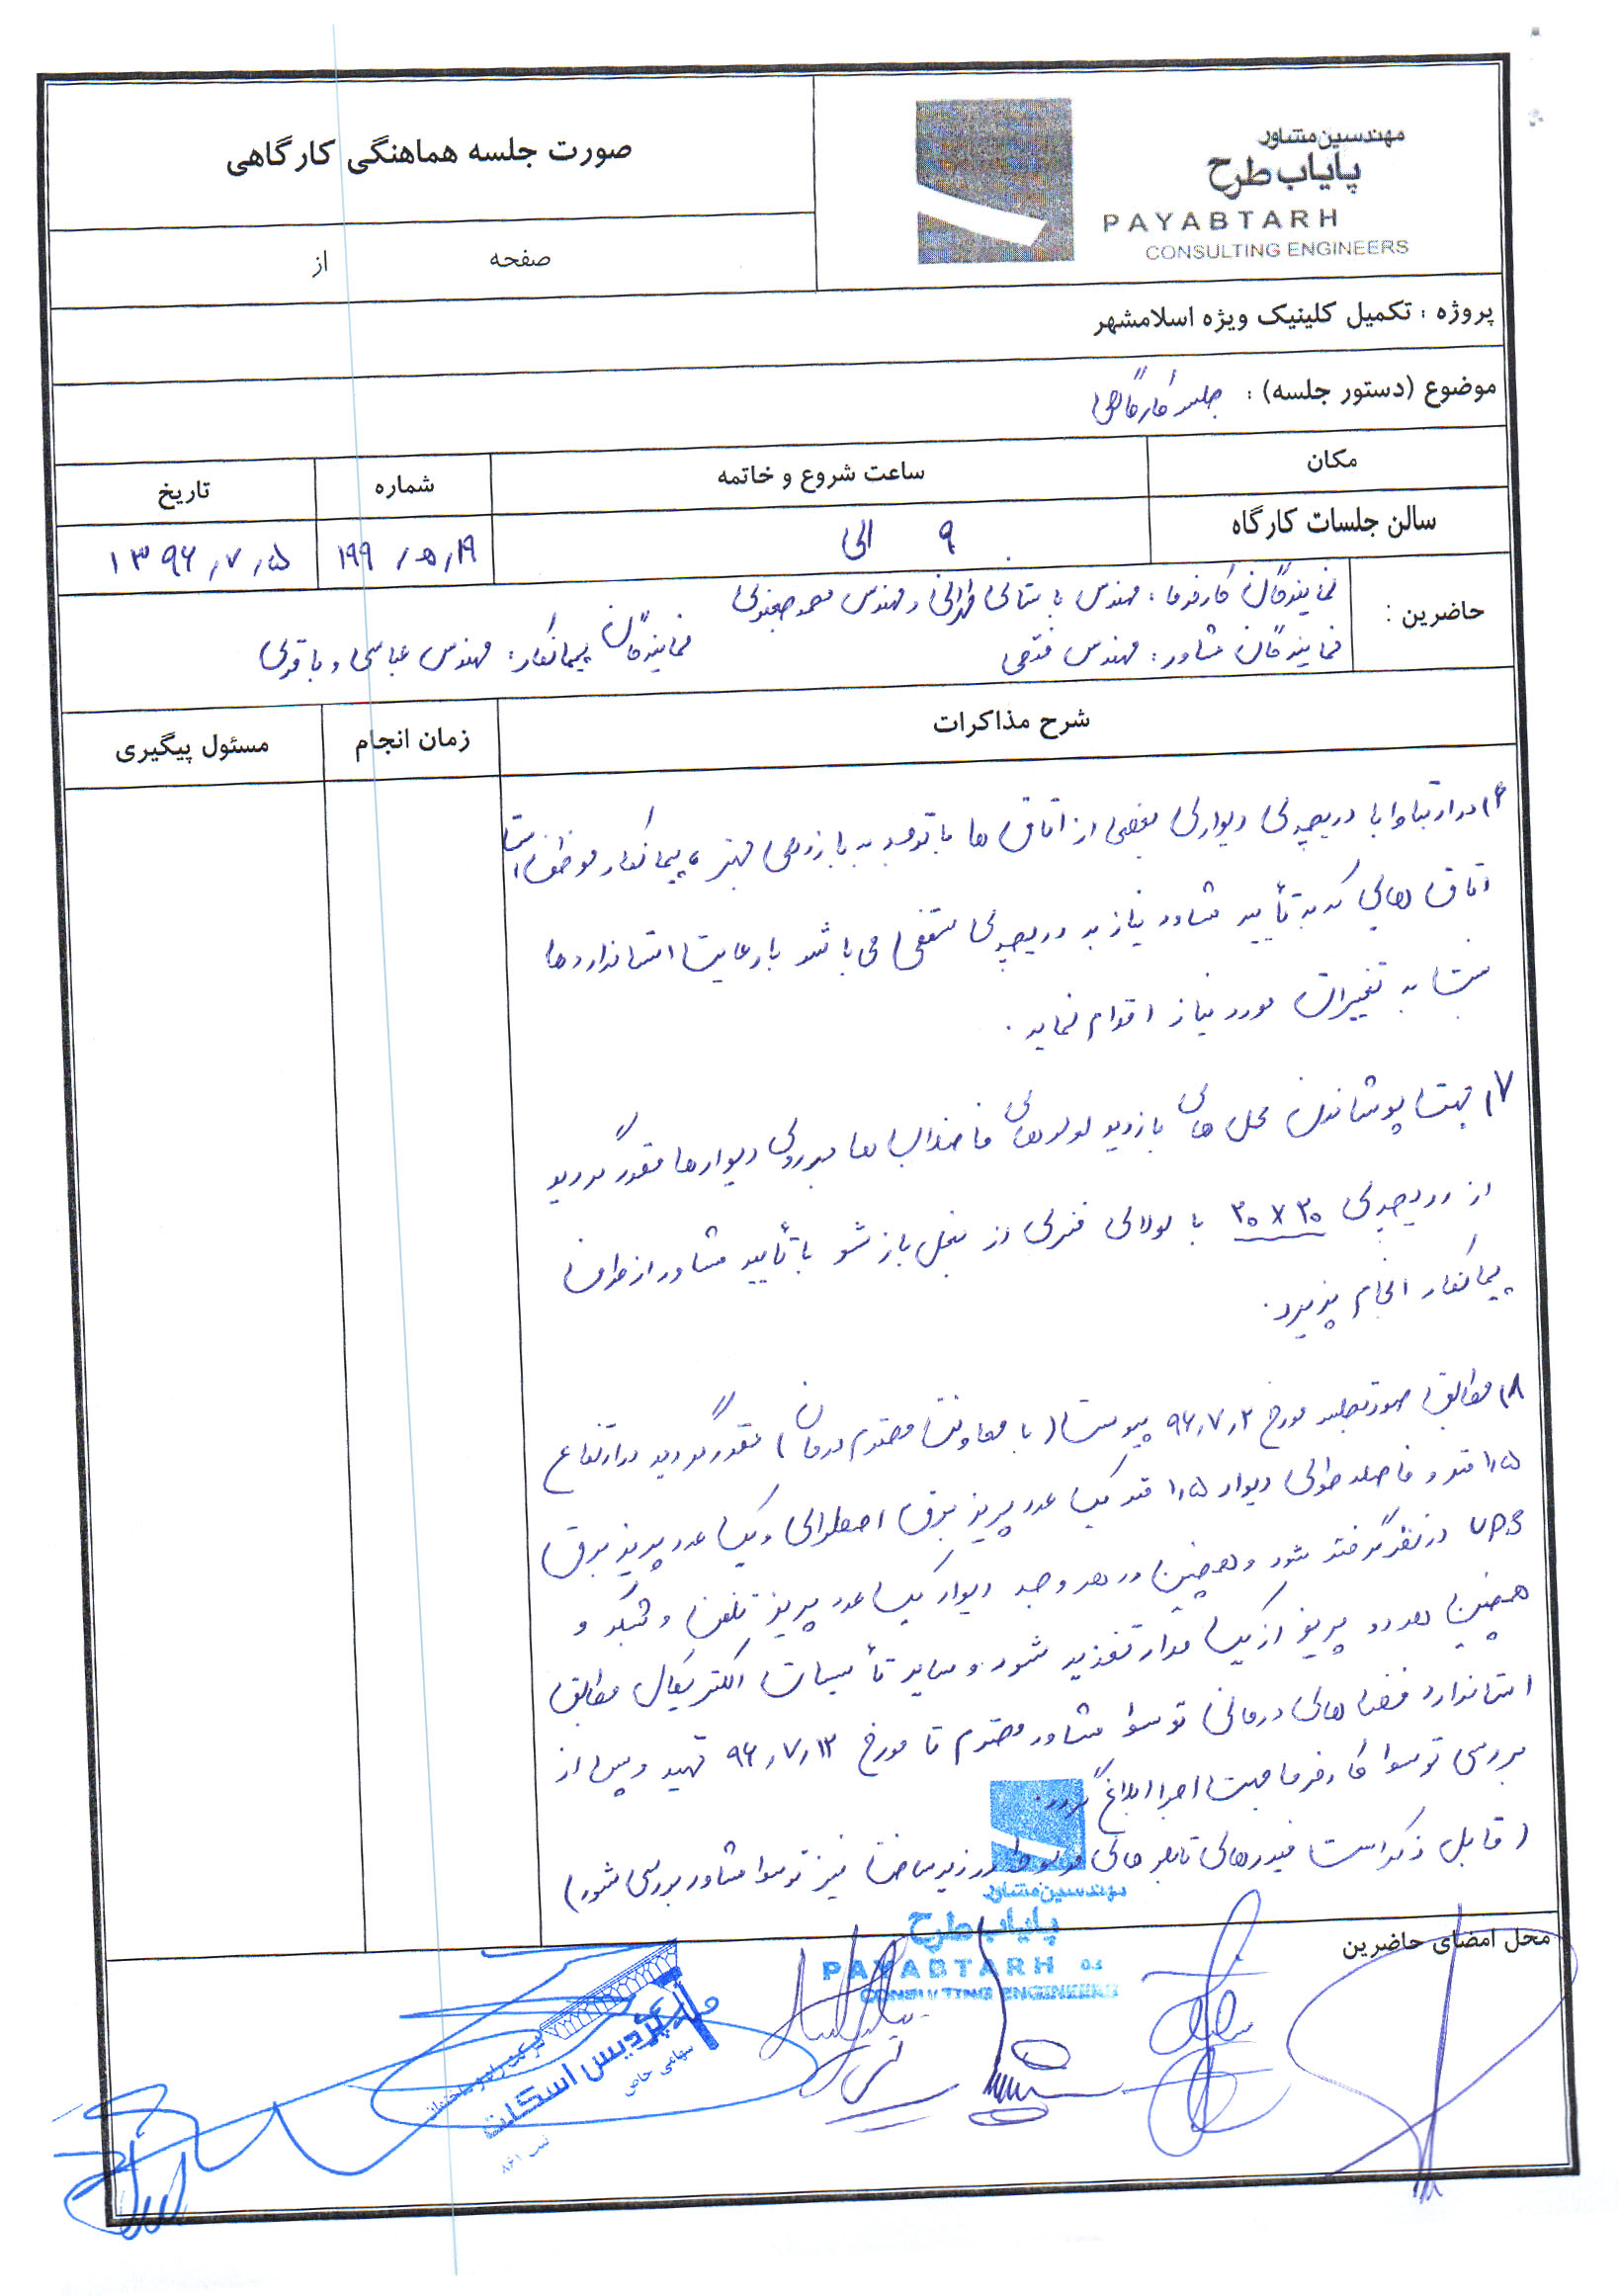 مهندسین مشاور
پایاب طرح
PAYABTARH
CONSULTING ENGINEERS
صورت جلسه هماهنگی کارگاهی
صفحه از
پروژه : تکمیل کلینیک ویژه اسلامشهر
موضوع (دستور جلسه) : جلسه کارگاهی
مکان ساعت شروع و خاتمه شماره تاریخ
سالن جلسات کارگاه ۹ الی ۱۳۹۶,۷,۵
حاضرین :
نمایندگان کارفرما : مهندس و مهندس
نمایندگان مشاور : مهندس فتحی نمایندگان پیمانکار : مهندس عباسی و باقری
شرح مذاکرات زمان انجام مسئول پیگیری
۶) در ارتباط با دریچه‌ی دیواری بعضی از اتاق ها با توجه به بازدهی بهتر ، پیمانکار موظف است
اتاق هایی که به تأیید مشاور نیاز به دریچه‌ی سقفی می باشد با رعایت استانداردها
نسبت به تغییرات مورد نیاز اقدام نماید .
۷) جهت پوشاندن محل های بازدید لوله های فاضلاب ها بر روی دیوارها مقرر گردید
از دریچه‌ی ۳۰×۳۰ با لولای فنری از بغل باز شو با تأیید مشاور از طرف
پیمانکار انجام پذیرد .
۸) مطابق صورتجلسه مورخ ۹۶,۷,۲ پیوست (با معاونت محترم درمان) مقرر گردید در ارتفاع
۱,۵ متر و فاصله طولی دیوار ۱,۵ متر یک عدد پریز برق اضطراری و یک عدد پریز برق
UPS در نظر گرفته شود و همچنین در هر وجه دیوار یک عدد پریز تلفن و شبکه و
همچنین هر دو پریز از یک مدار تغذیه شود و سایر تأسیسات الکتریکال مطابق
استاندارد فضاهای درمانی توسط مشاور محترم تا مورخ ۹۶,۷,۱۲ تهیه و پس از
بررسی توسط کارفرما جهت اجرا ابلاغ گردد .
(قابل ذکر است فیدرهای تابلوهای مربوطه در زیرساخت نیز توسط مشاور بررسی شود)
محل امضای حاضرین
مهندسین مشاور
پایاب طرح
PAYABTARH
CONSULTING ENGINEERS
پردیس اسکلت
سهامی خاص